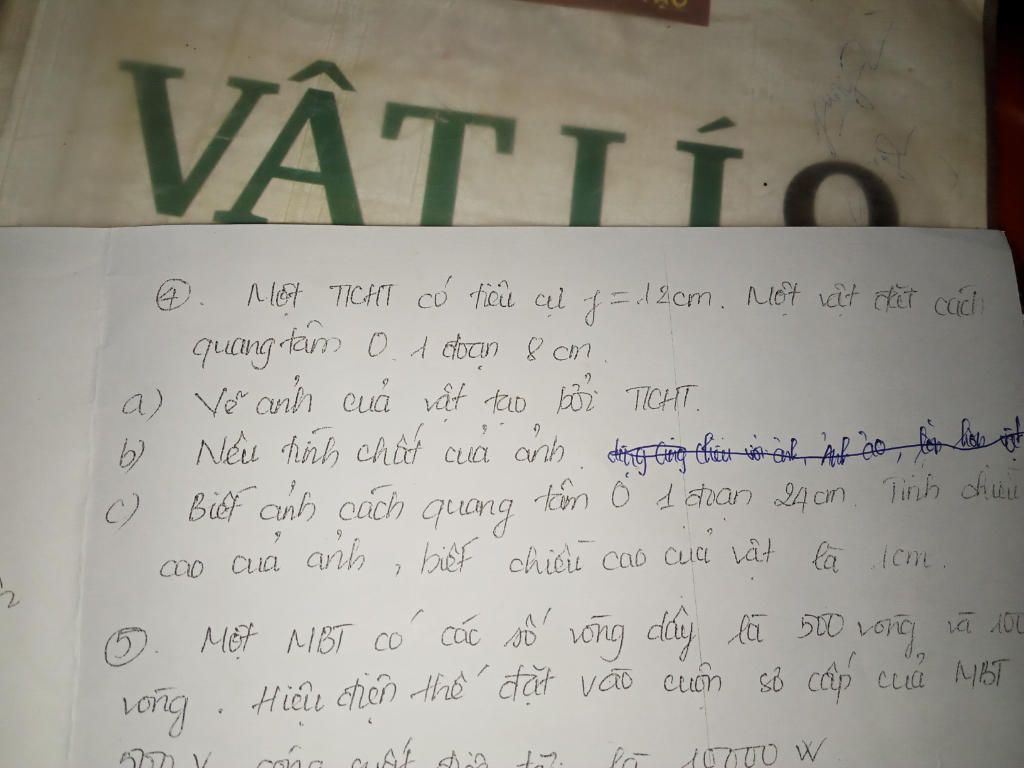 VẬT LÍ 9
④. Một TKHT có tiêu cự f = 12cm. Một vật đặt cách
quang tâm O 1 đoạn 8 cm.
a) Vẽ ảnh cuả vật tạo bởi TKHT.
b) Nêu tính chất cuả ảnh.
c) Biết ảnh cách quang tâm O 1 đoạn 24cm. Tính chiều
cao cuả ảnh, biết chiều cao cuả vật là 1cm.
⑤. Một MBT có các số vòng dây là 500 vòng và
vòng. Hiệu điện thế đặt vào cuộn sơ cấp cuả MBT
là 10000 W